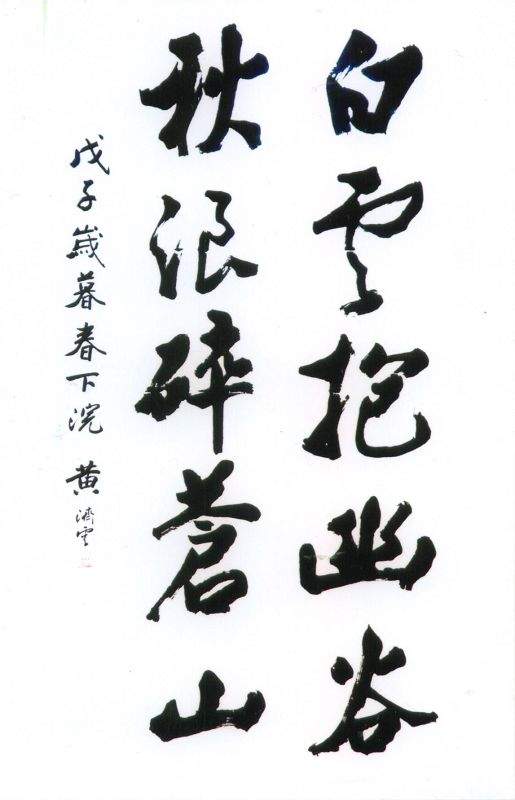 白雲抱幽谷
秋浪碎蒼山
戊子歲暮春下浣 黄濟雲